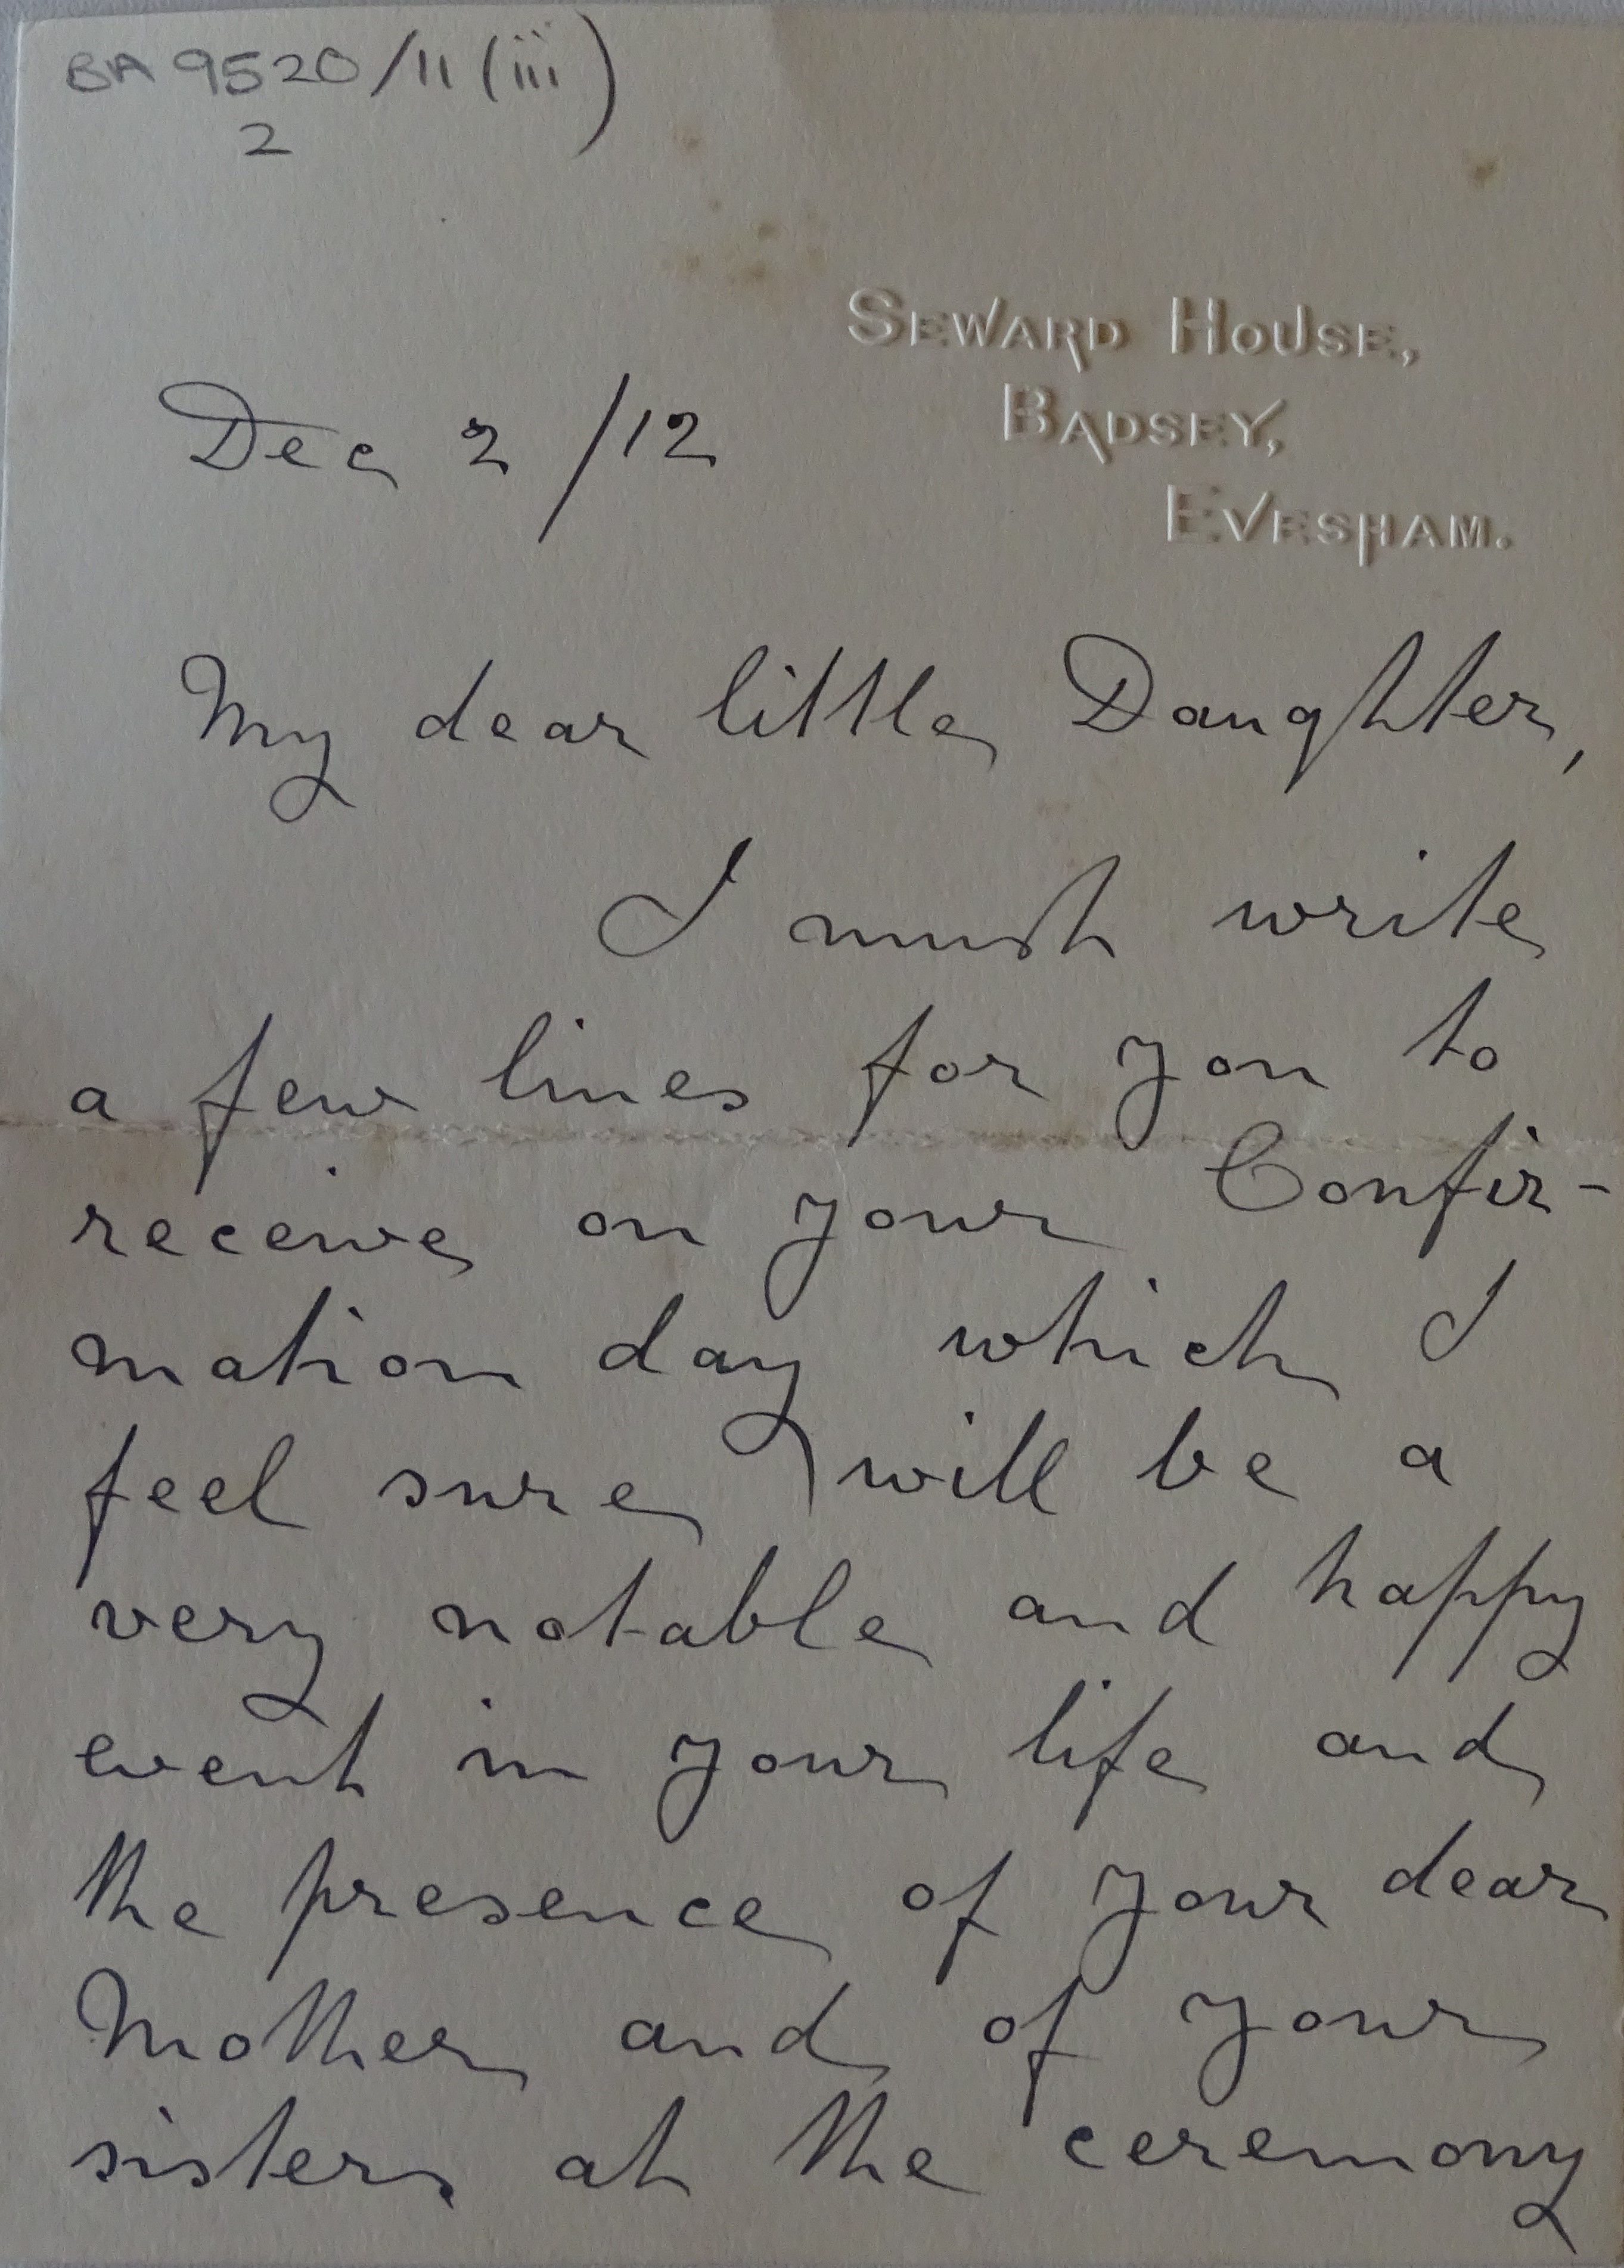 BA 9520/11 (iii)
2
SEWARD HOUSE,
BADSEY,
EVESHAM.
Dec 2 /12
My dear little Daughter,
I must write
a few lines for you to
receive on your Confir-
mation day which I
feel sure will be a
very notable and happy
event in your life and
the presence of your dear
Mother and of your
sisters at the ceremony